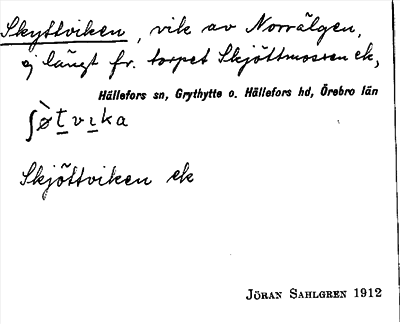 Skyttviken, vik av Norrälgen,
ej långt fr. torpet Skjöttmossen ek,
Hällefors sn, Grythytte o. Hällefors hd, Örebro län
ʃø̀t vıka
Skjöttviken ek
JÖRAN SAHLGREN 1912